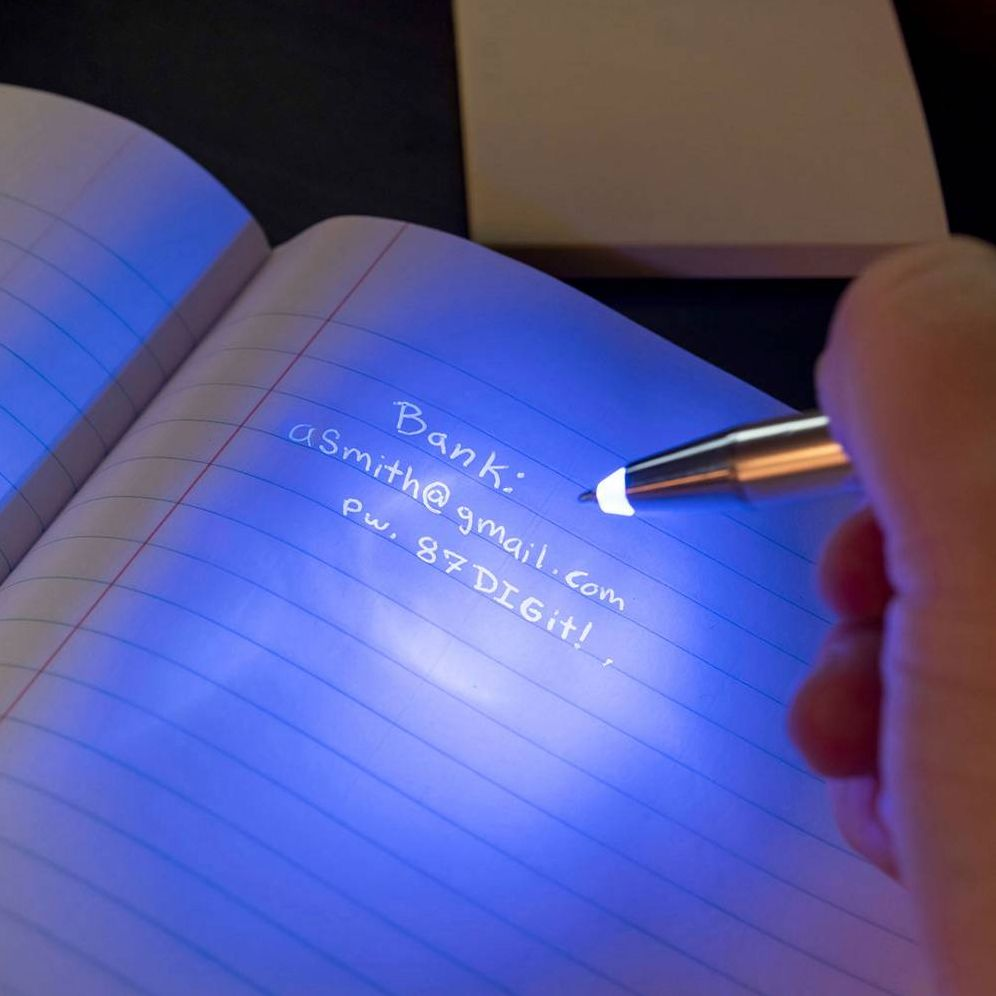 Bank:
asmith@gmail.com
pw. 87DIGit! ,